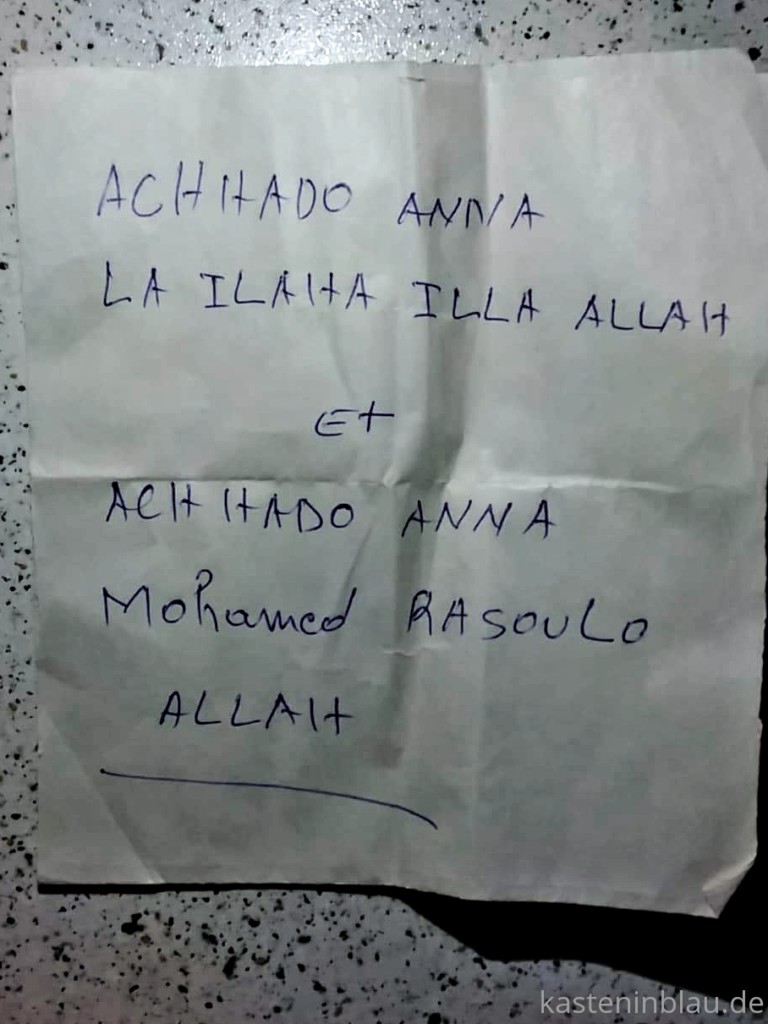 ACHHADO ANNA
LA ILAHA ILLA ALLAH
Et
ACHHADO ANNA
Mohamed RASOULO
ALLAH
kasteninblau.de